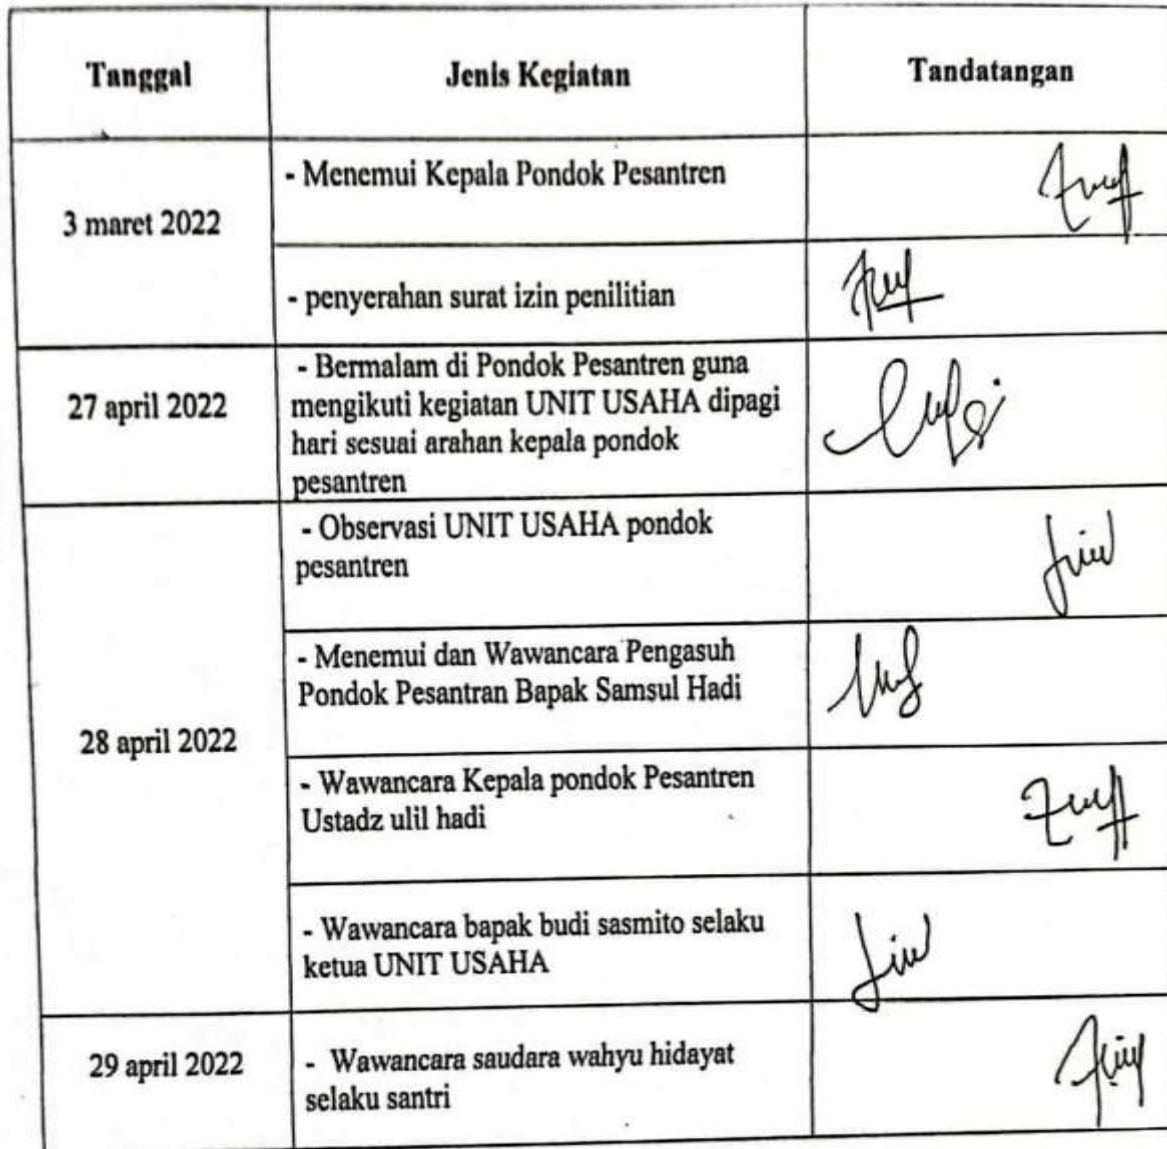 Tanggal Jenis Kegiatan Tandatangan
3 maret 2022
- Menemui Kepala Pondok Pesantren
- penyerahan surat izin penilitian
27 april 2022
- Bermalam di Pondok Pesantren guna
mengikuti kegiatan UNIT USAHA dipagi
hari sesuai arahan kepala pondok
pesantren
28 april 2022
- Observasi UNIT USAHA pondok
pesantren
- Menemui dan Wawancara Pengasuh
Pondok Pesantran Bapak Samsul Hadi
- Wawancara Kepala pondok Pesantren
Ustadz ulil hadi
- Wawancara bapak budi sasmito selaku
ketua UNIT USAHA
29 april 2022
- Wawancara saudara wahyu hidayat
selaku santri